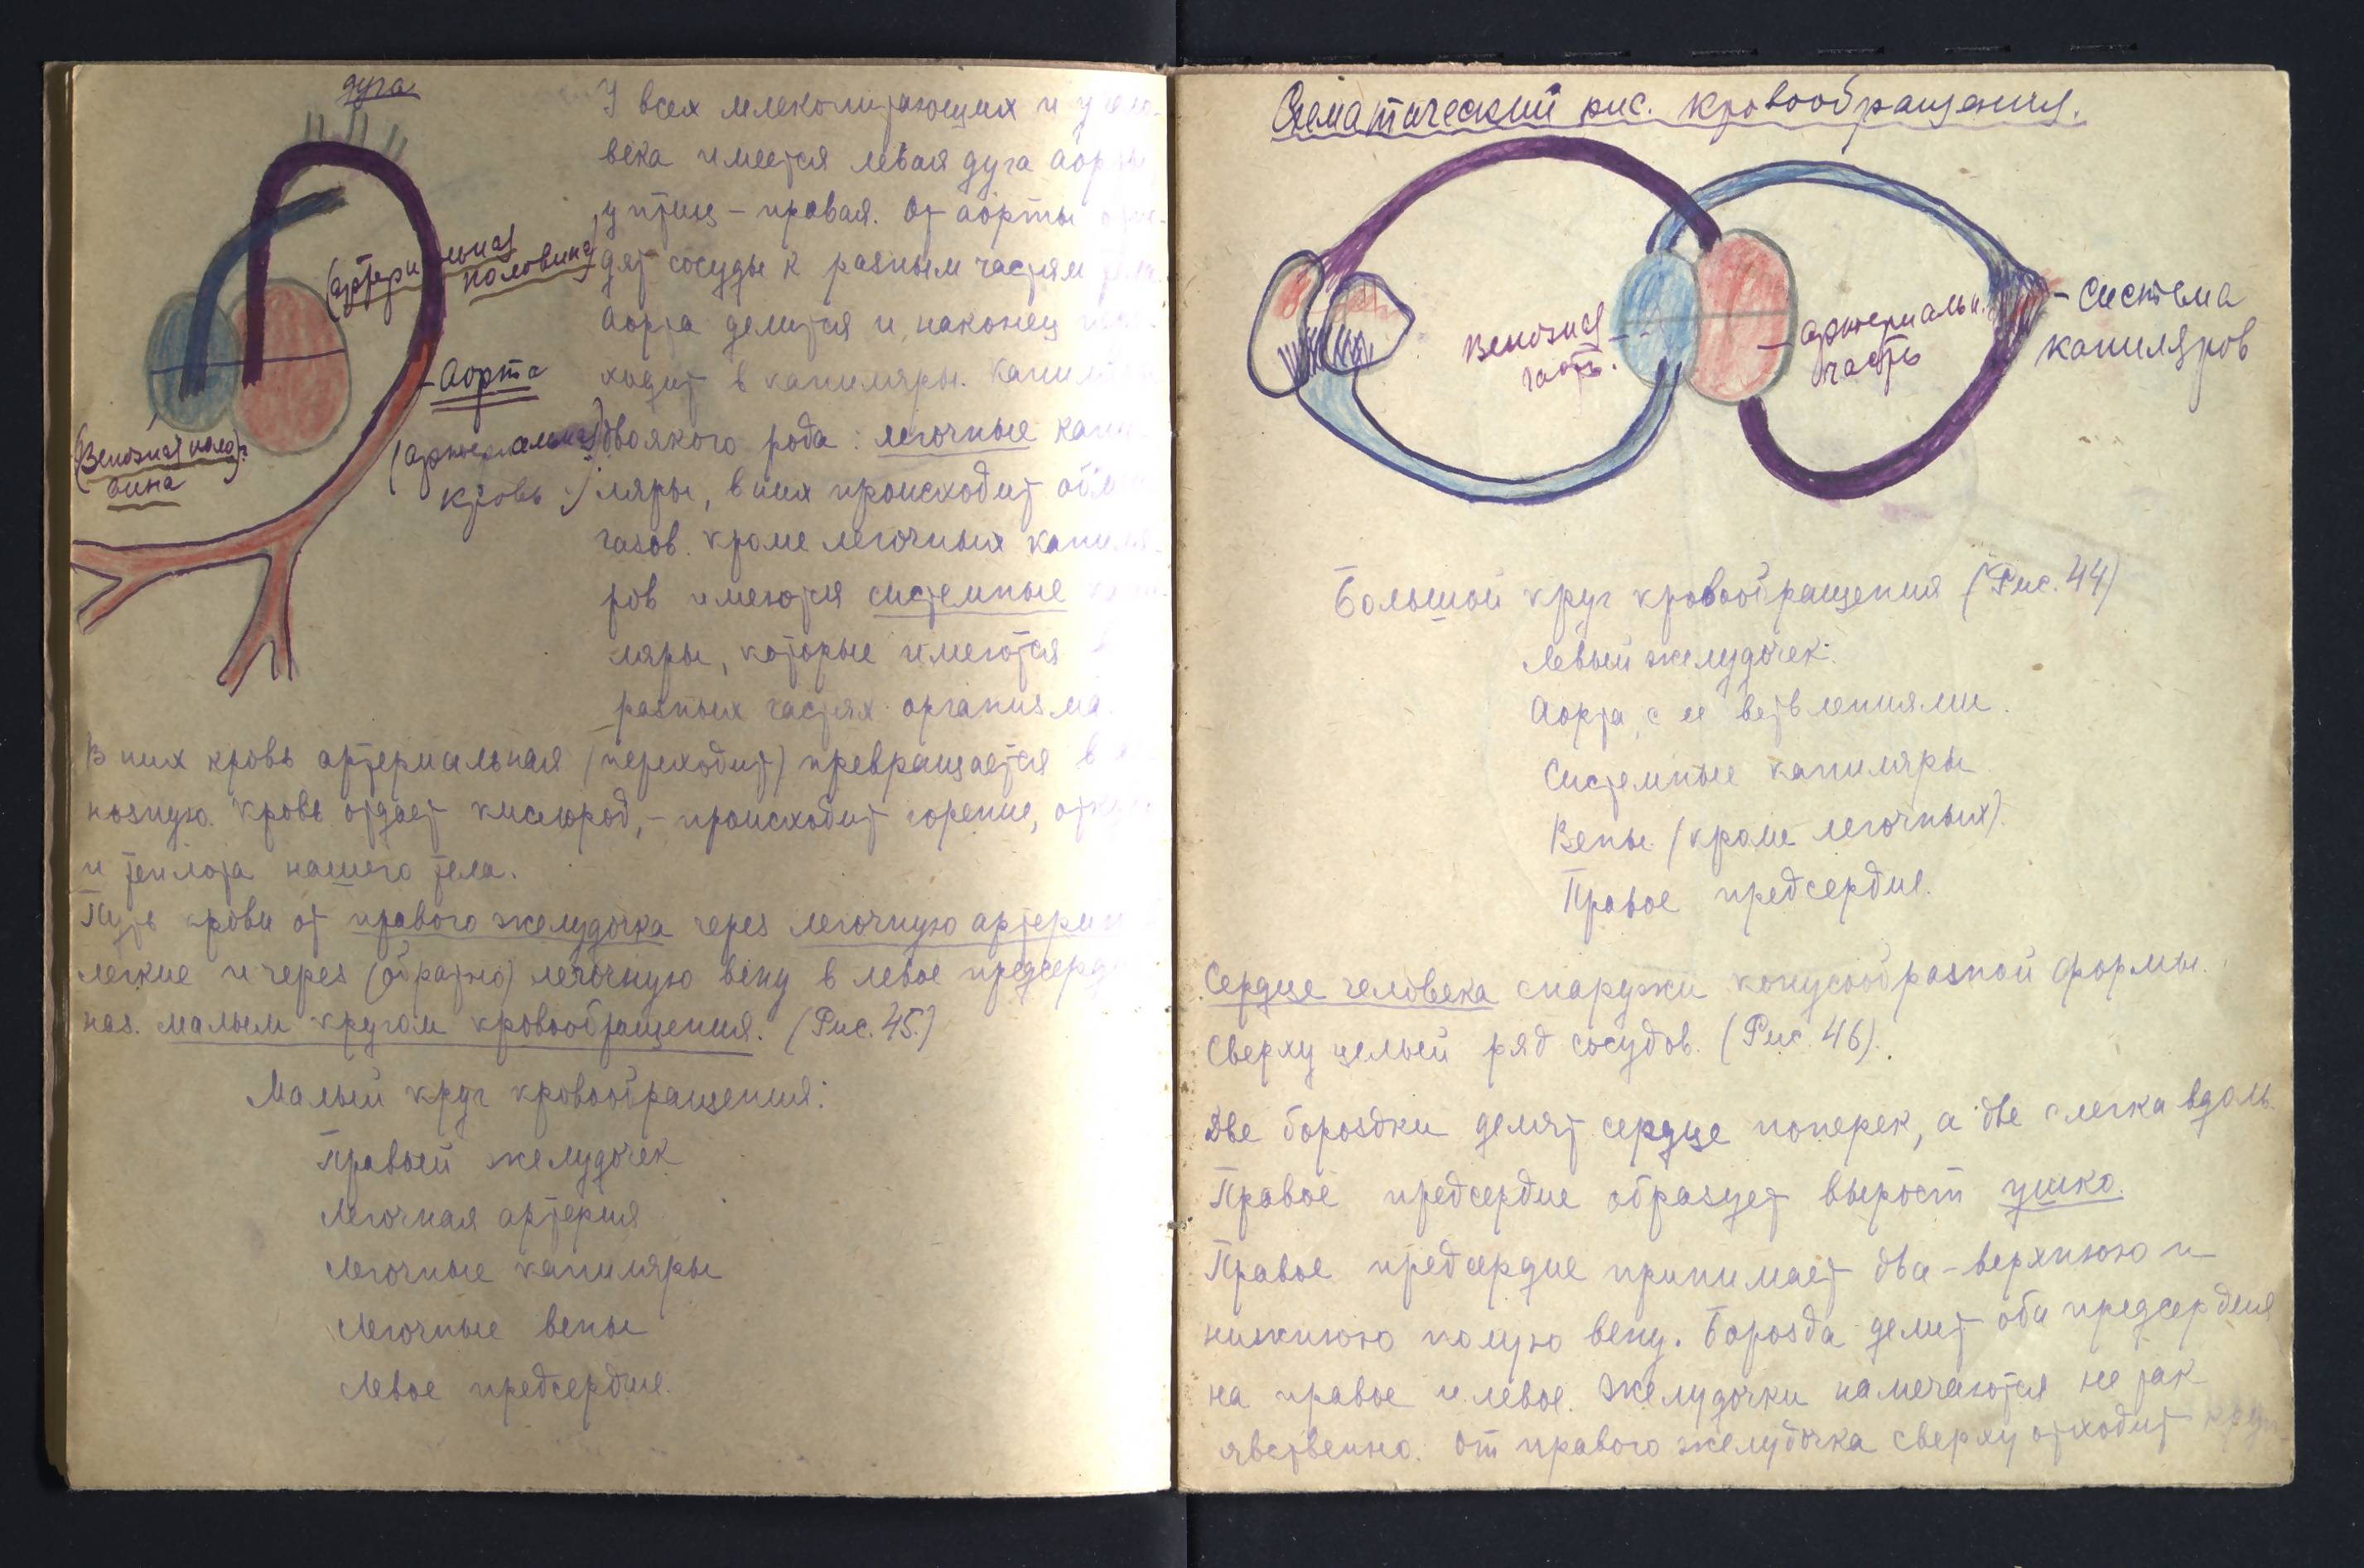 дуга
(артериальная
половина)
Аорта
(Венозная поло-
вина)
(артериальная
кровь.)
У всех млекопитающих и у чело-
века имеется левая дуга аорты
у птиц - правая. От аорты отхо-
дят сосуды к разным частям тела.
Аорта делится и, наконец
ходит в капиляры. Капиляры
двоякого рода: легочные капи-
ляры, в них происходит обмен
газов. Кроме легочных капиля-
ров имеются системные капи-
ляры, которые имеются в
разных частях организма.
В них кровь артериальная (переходит) превращается в ве-
нозную. Кровь отдает кислород, - происходит горение, откуда
и теплота нашего тела.
Путь крови от правого желудочка через легочную артерию
легкие и через (обратно) легочную вену в левое предсердие
наз. малым кругом кровообращения. (Рис. 45.)
Малый круг кровообращения:
Правый желудочек
Легочная артерия
Легочные капиляры
Легочные вены
Левое предсердие.
Схематический рис. кровообращения.
Венозная
часть.
артериальн.
часть
Система
капиляров
Большой круг кровообращения (Рис. 44)
Левый желудочек.
Аорта с ее ветвлениями.
Системные капиляры
Вены (кроме легочных).
Правое предсердие.
Сердце человека снаружи конусообразной формы.
Сверху целый ряд сосудов. (Рис. 46).
Две бороздки делят сердце поперек, а две слегка вдоль.
Правое предсердие образует вырост ушко.
Правое предсердие принимает два - верхнюю и
нижнюю полую вену. Борозда делит оба предсердия
на правое и левое. Желудочки намечаются не так
явственно. От правого желудочка сверху отходит